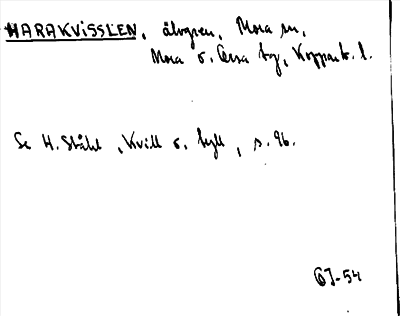 HARAKVISSLEN, älvgren, Mora sn,
Mora o. Orsa tg, Kopparb. l.
Se H. Ståhl, Kvill o. hyll, s. 96.
GJ-54